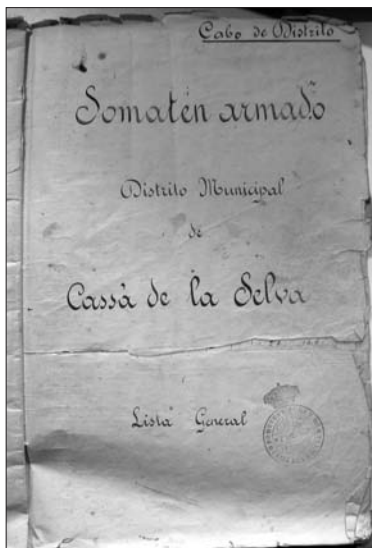 Cabo de Distrito
Somatén armado
Distrito Municipal
de
Cassà de la Selva
Lista General